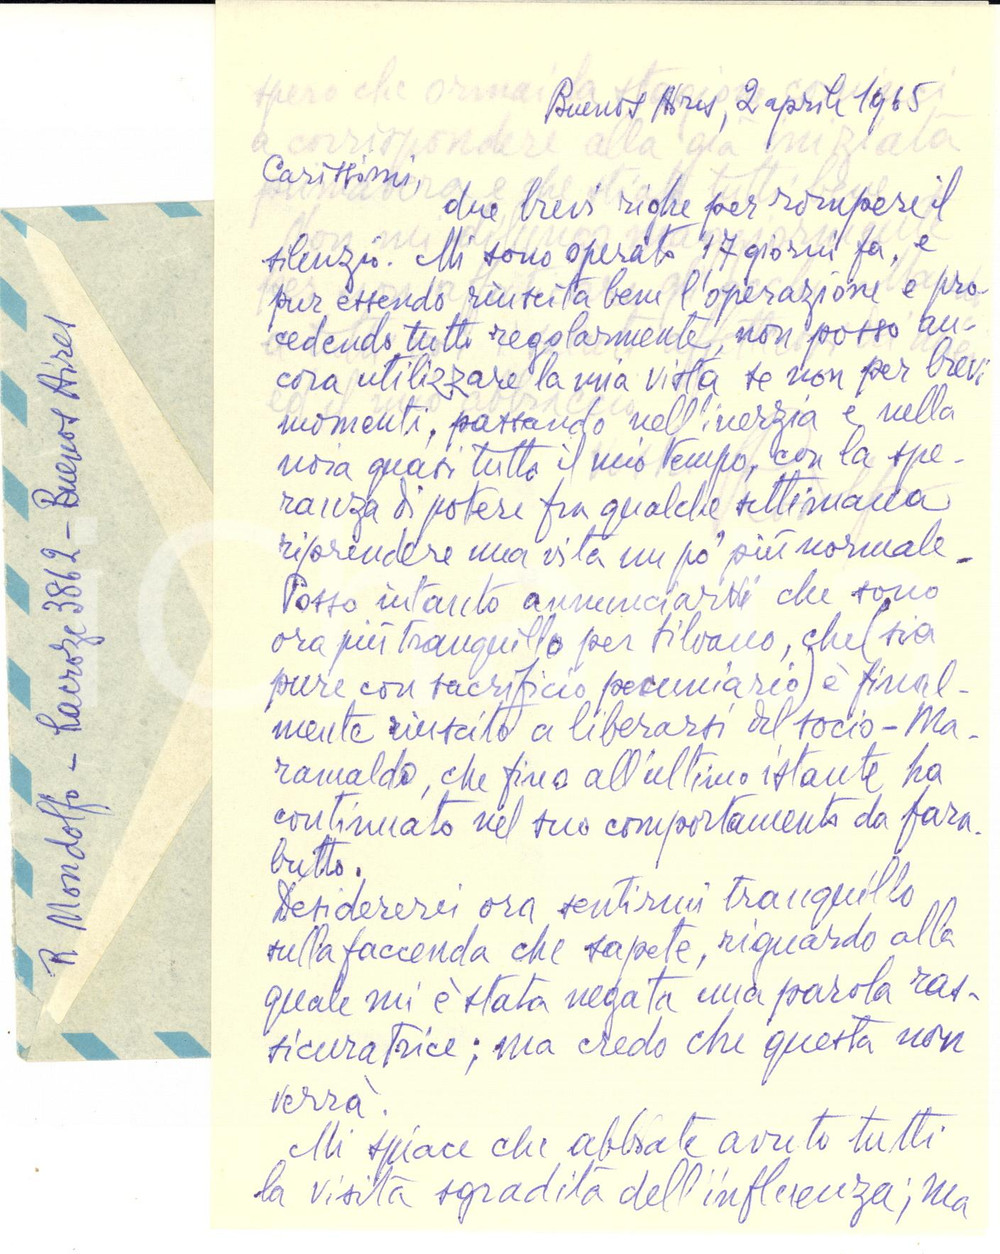 Buenos Aires, 2 aprile 1965
Carissimi,
due brevi righe per rompere il
silenzio. Mi sono operato 17 giorni fa, e
pur essendo riuscita bene l'operazione e pro-
cedendo tutto regolarmente, non posso an-
cora utilizzare la mia vista se non per brevi
momenti, passando nell'inerzia e nella
noia quasi tutto il mio tempo, con la spe-
ranza di potere fra qualche settimana
riprendere una vita un po' più normale.
Posso intanto annunciarvi che sono
ora più tranquillo per Silvano, che (sia
pure con sacrificio pecuniario) è final-
mente riuscito a liberarsi del socio-Ma-
ramaldo, che fino all'ultimo istante ha
continuato nel suo comportamento da fara-
butto.
Desidererei ora sentirmi tranquillo
sulla faccenda che sapete, riguardo alla
quale mi è stata negata una parola ras-
sicuratrice; ma credo che questa non
verrà.
Mi spiace che abbiate avuto tutti
la visita sgradita dell'influenza; ma
spero che ormai la stagione cominci
a corrispondere alla già iniziata
primavera e che stiate tutti bene.
R Mondolfo - Lacroze 3862 - Buenos Aires